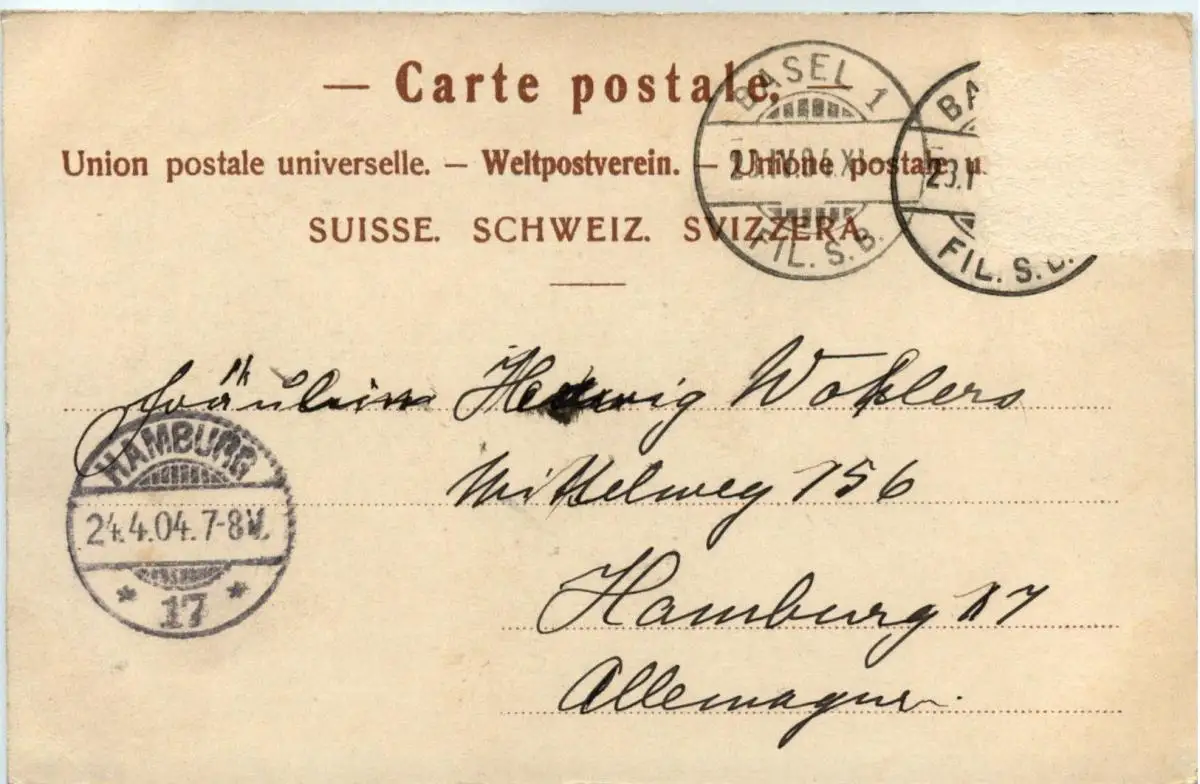 — Carte postale. —
Union postale universelle. — Weltpostverein. — Unione postale u.
SUISSE. SCHWEIZ. SVIZZERA.
BASEL 1
23.IV.04.XI
FIL. S. B.
BA
23.I
FIL. S. B.
Fräulein Hedwig Wohlers
Mittelweg 156
Hamburg 17
Allemagne.
HAMBURG
24.4.04.7-8V.
* 17 *